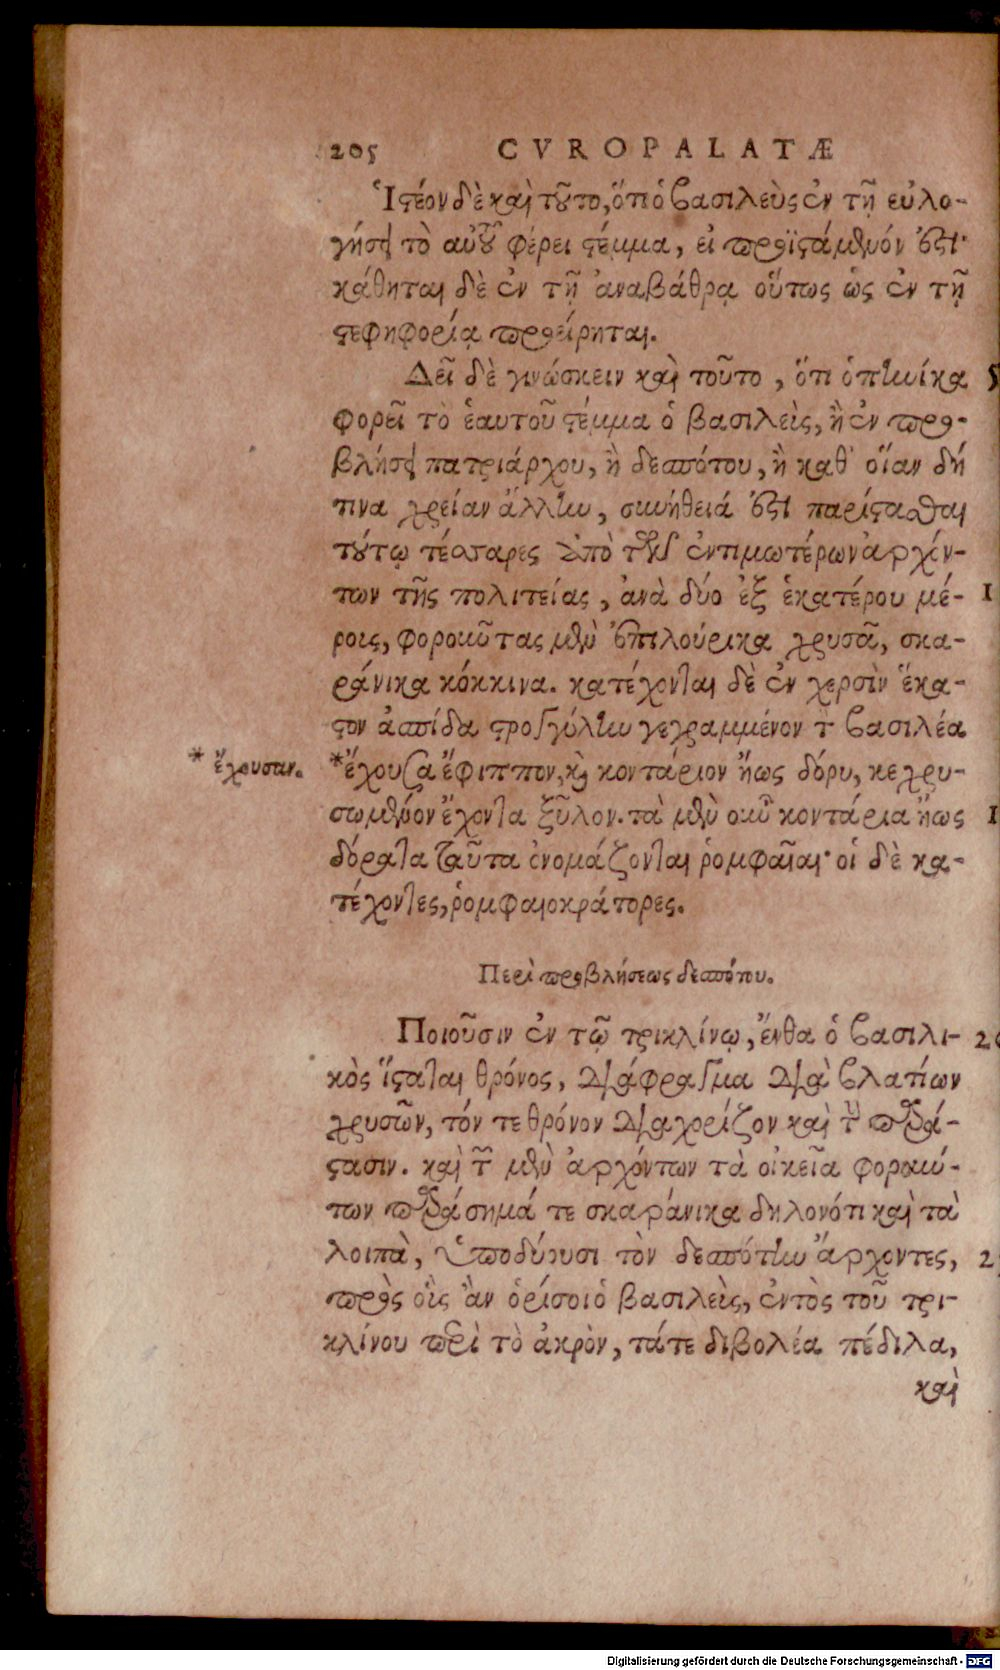 205 CVROPALATÆ
Ἰστέον δὲ καὶ τοῦτο, ὅτι ὁ βασιλεὺς ἐν τῇ εὐλο-
γήσει τὸ αὐτοῦ φέρει στέμμα, εἰ προϊστάμενόν ἐστι·
κάθηται δὲ ἐν τῇ ἀναβάθρᾳ οὕτως ὡς ἐν τῇ
στεφηφορίᾳ προείρηται.
Δεῖ δὲ γινώσκειν καὶ τοῦτο, ὅτι ὁπηνίκα 5
φορεῖ τὸ ἑαυτοῦ στέμμα ὁ βασιλεὶς, ἢ ἐν προ-
βλήσει πατριάρχου, ἢ δεσπότου, ἢ καθ᾽ οἵαν δή
τινα χρείαν ἄλλην, συνήθειά ἐστι παρίστασθαι
τούτῳ τέσσαρες ἀπὸ τῶν ἐντιμωτέρων ἀρχόν-
των τῆς πολιτείας, ἀνὰ δύο ἐξ ἑκατέρου μέ- 1
ροις, φοροῦντας μὲν ἐπιλούρικα χρυσᾶ, σκα-
ράνικα κόκκινα. κατέχονται δὲ ἐν χερσὶν ἕκα-
στον ἀσπίδα στρογγύλην γεγραμμένον τὸν βασιλέα
* ἔχουσαν.
*ἔχουσα ἔφιππον, καὶ κοντάριον ἤως δόρυ, κεχρυ-
σωμένον ἔχοντα ξῦλον. τὰ μὲν οὖν κοντάρια ἤως 1
δόρατα ταῦτα ὀνομάζονται ῥομφαῖαι· οἱ δὲ κα-
τέχοντες, ῥομφαιοκράτορες.
Περὶ προβλήσεως δεσπότου.
Ποιοῦσιν ἐν τῷ τρικλίνῳ, ἔνθα ὁ βασιλι- 2
κὸς ἵσταται θρόνος, διάφραγμα διὰ βλατίων
χρυσῶν, τόν τε θρόνον διαχρίζον καὶ τὴν παρά-
στασιν. καὶ τῶν μὲν ἀρχόντων τὰ οἰκεῖα φορούν-
των παράσημά τε σκαράνικα δηλονότι καὶ τὰ
λοιπὰ, ὑποδύουσι τὸν δεσπότην ἄρχοντες, 2
πρὸς οἷς ἂν ὁρίσοι ὁ βασιλεὶς, ἐντὸς τοῦ τρι-
κλίνου περὶ τὸ ἀκρὸν, τάτε διβολέα πέδιλα,
καὶ
Digitalisierung gefördert durch die Deutsche Forschungsgemeinschaft - DFG